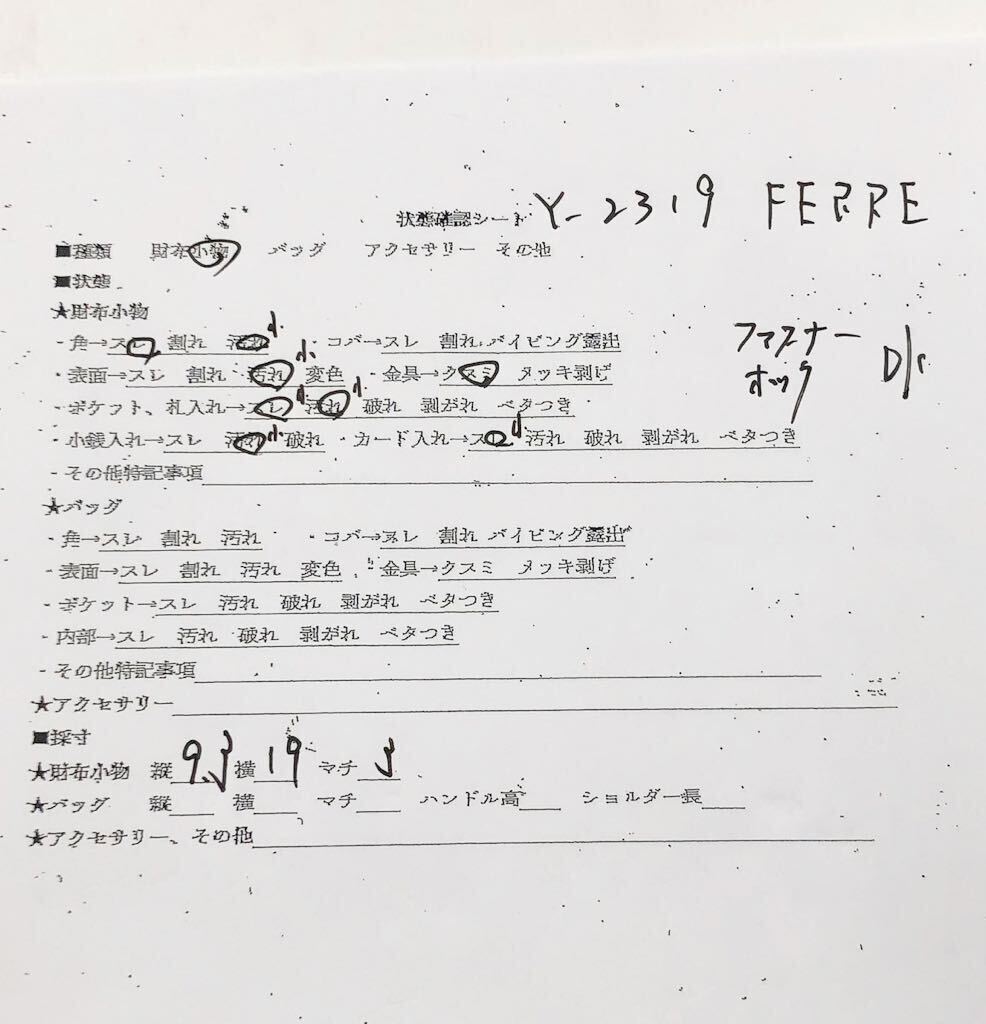 状態確認シート Y-2319 FERRE
■種類 財布小物 バッグ アクセサリー その他
■状態
★財布小物
・角→スレ 割れ 汚れ 小 ・コバ→スレ 割れ パイピング露出
ファスナー
ホック
・表面→スレ 割れ 汚れ 小 変色 ・金具→クスミ メッキ剥げ
・ポケット、札入れ→スレ 小 汚れ 小 破れ 剥がれ ベタつき
・小銭入れ→スレ 汚れ 小 破れ ・カード入れ→スレ 小 汚れ 破れ 剥がれ ベタつき
・その他特記事項
★バッグ
・角→スレ 割れ 汚れ ・コバ→スレ 割れ パイピング露出
・表面→スレ 割れ 汚れ 変色 ・金具→クスミ メッキ剥げ
・ポケット→スレ 汚れ 破れ 剥がれ ベタつき
・内部→スレ 汚れ 破れ 剥がれ ベタつき
・その他特記事項
★アクセサリー
■採寸
★財布小物 縦 横 19 マチ
★バッグ 縦 横 マチ ハンドル高 ショルダー長
★アクセサリー、その他